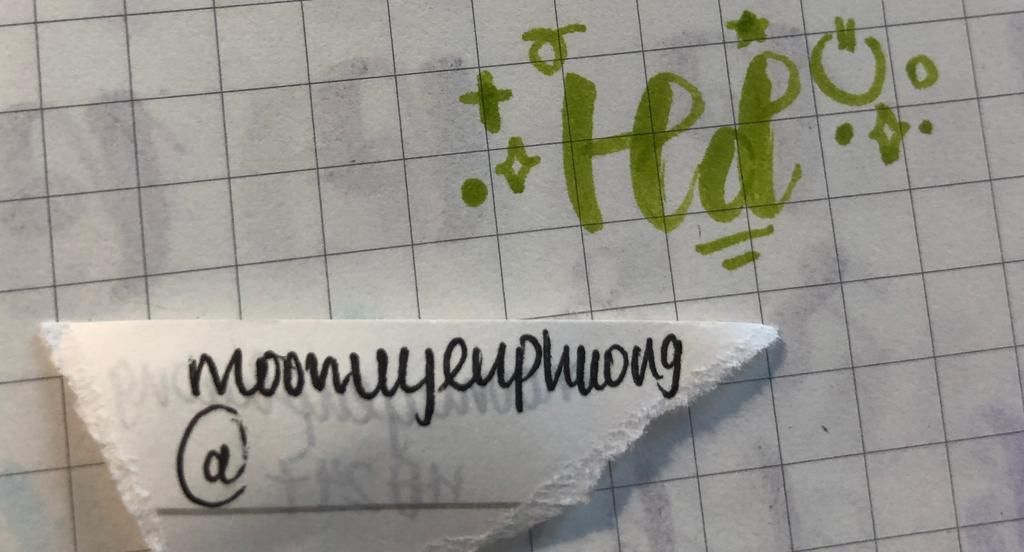 Hd
moonuyenphuong
@